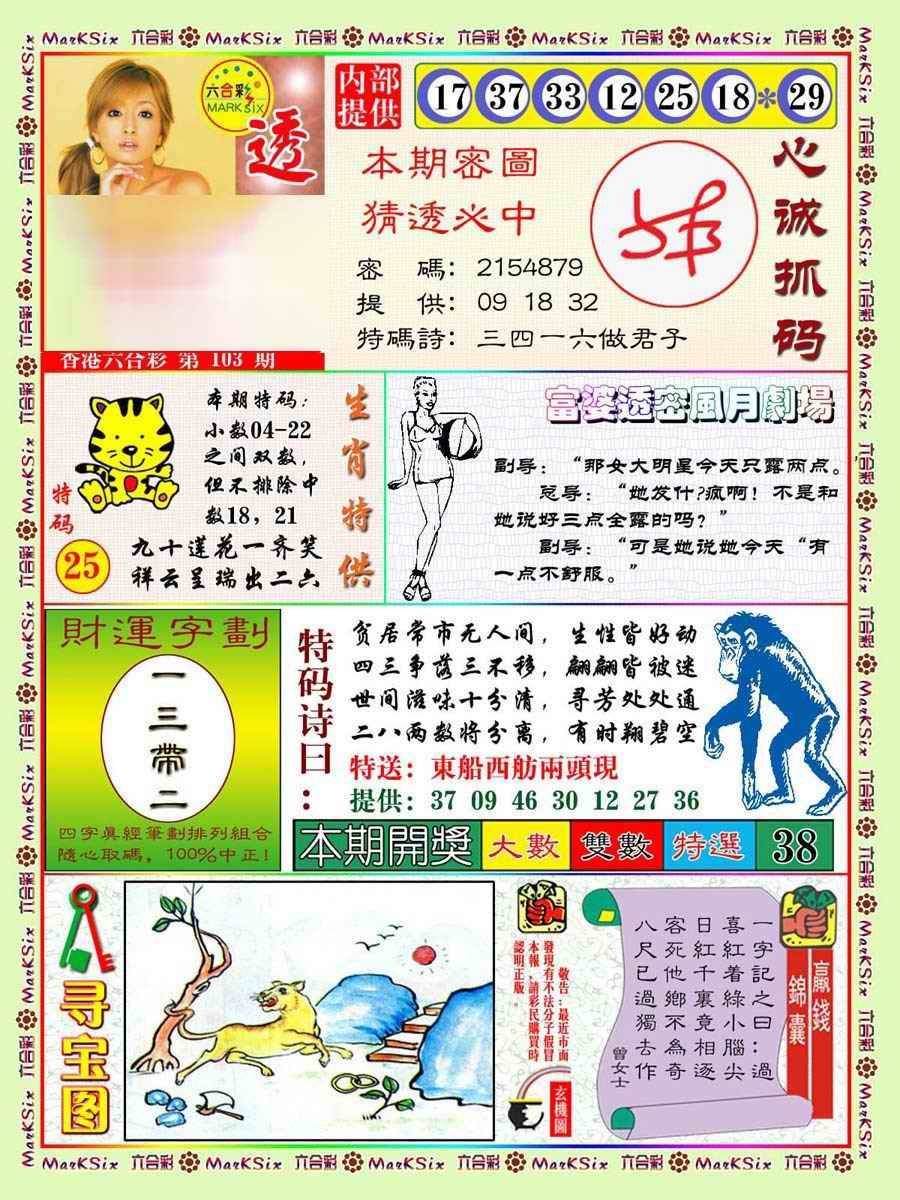 MarKSix 六合彩 MarKSix 六合彩 MarKSix 六合彩 MarKSix 六合彩 MarKSix 六合彩
六合彩
MARK SIX
透
内部
提供
17 37 33 12 25 18 * 29
本期密圖
猜透必中
密 碼：2154879
提 供：09 18 32
特碼詩：三四一六做君子
心诚抓码
香港六合彩 第 103 期
本期特码：
小数04-22
之间双数，
但不排除中
数18，21
特码
25
九十莲花一齐笑
祥云呈瑞出二六
生肖特供
富婆透密風月劇場
副导：“那女大明星今天只露两点。”
总导：“她发什?疯啊！不是和
她说好三点全露的吗？”
副导：“可是她说她今天“有
一点不舒服。”
財運字劃
一三帶二
四字眞經筆劃排列組合
隨心取碼，100%中正!
特码诗曰：
贫居常市无人间，生性皆好动
四三争落三不移，翩翩皆被迷
世间滋味十分清，寻芳处处通
二八两数将分离，有时翔碧空
特送：東船西舫兩頭現
提供：37 09 46 30 12 27 36
本期開獎 大數 雙數 特選 38
寻宝图
敬告：最近市面
發現有不法分子假冒
本報，請彩民購買時
認明正版。
玄機圖
贏錢
錦囊
一字記之曰：過
喜紅着綠小腦尖
日紅千裏竟相逐
客死他鄉不為奇
八尺已過獨去作
曾女士
MarKSix 六合彩 MarKSix 六合彩 MarKSix 六合彩 MarKSix 六合彩 MarKSix 六合彩